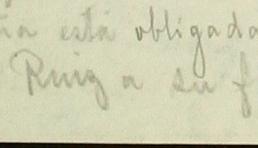 ia está obligada
Ruiz a su f